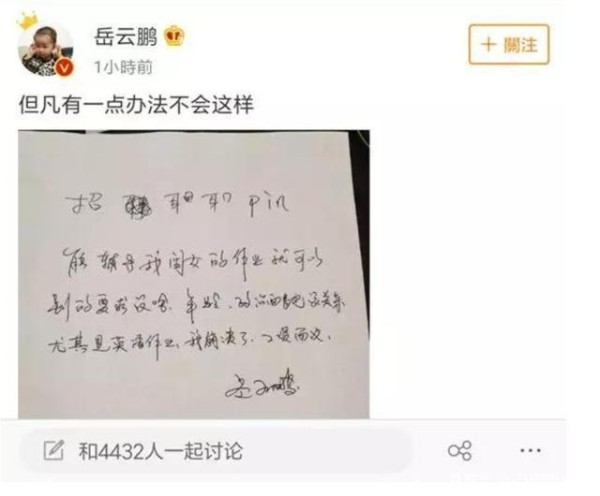 岳云鹏
1小時前
+ 關注
但凡有一点办法不会这样
招 职 司机
能辅导我闺女的作业就可以
别的要求没啥. 年龄. 政治面貌没关系
尤其是英语作业. 我崩溃了.
岳云鹏
和4432人一起讨论